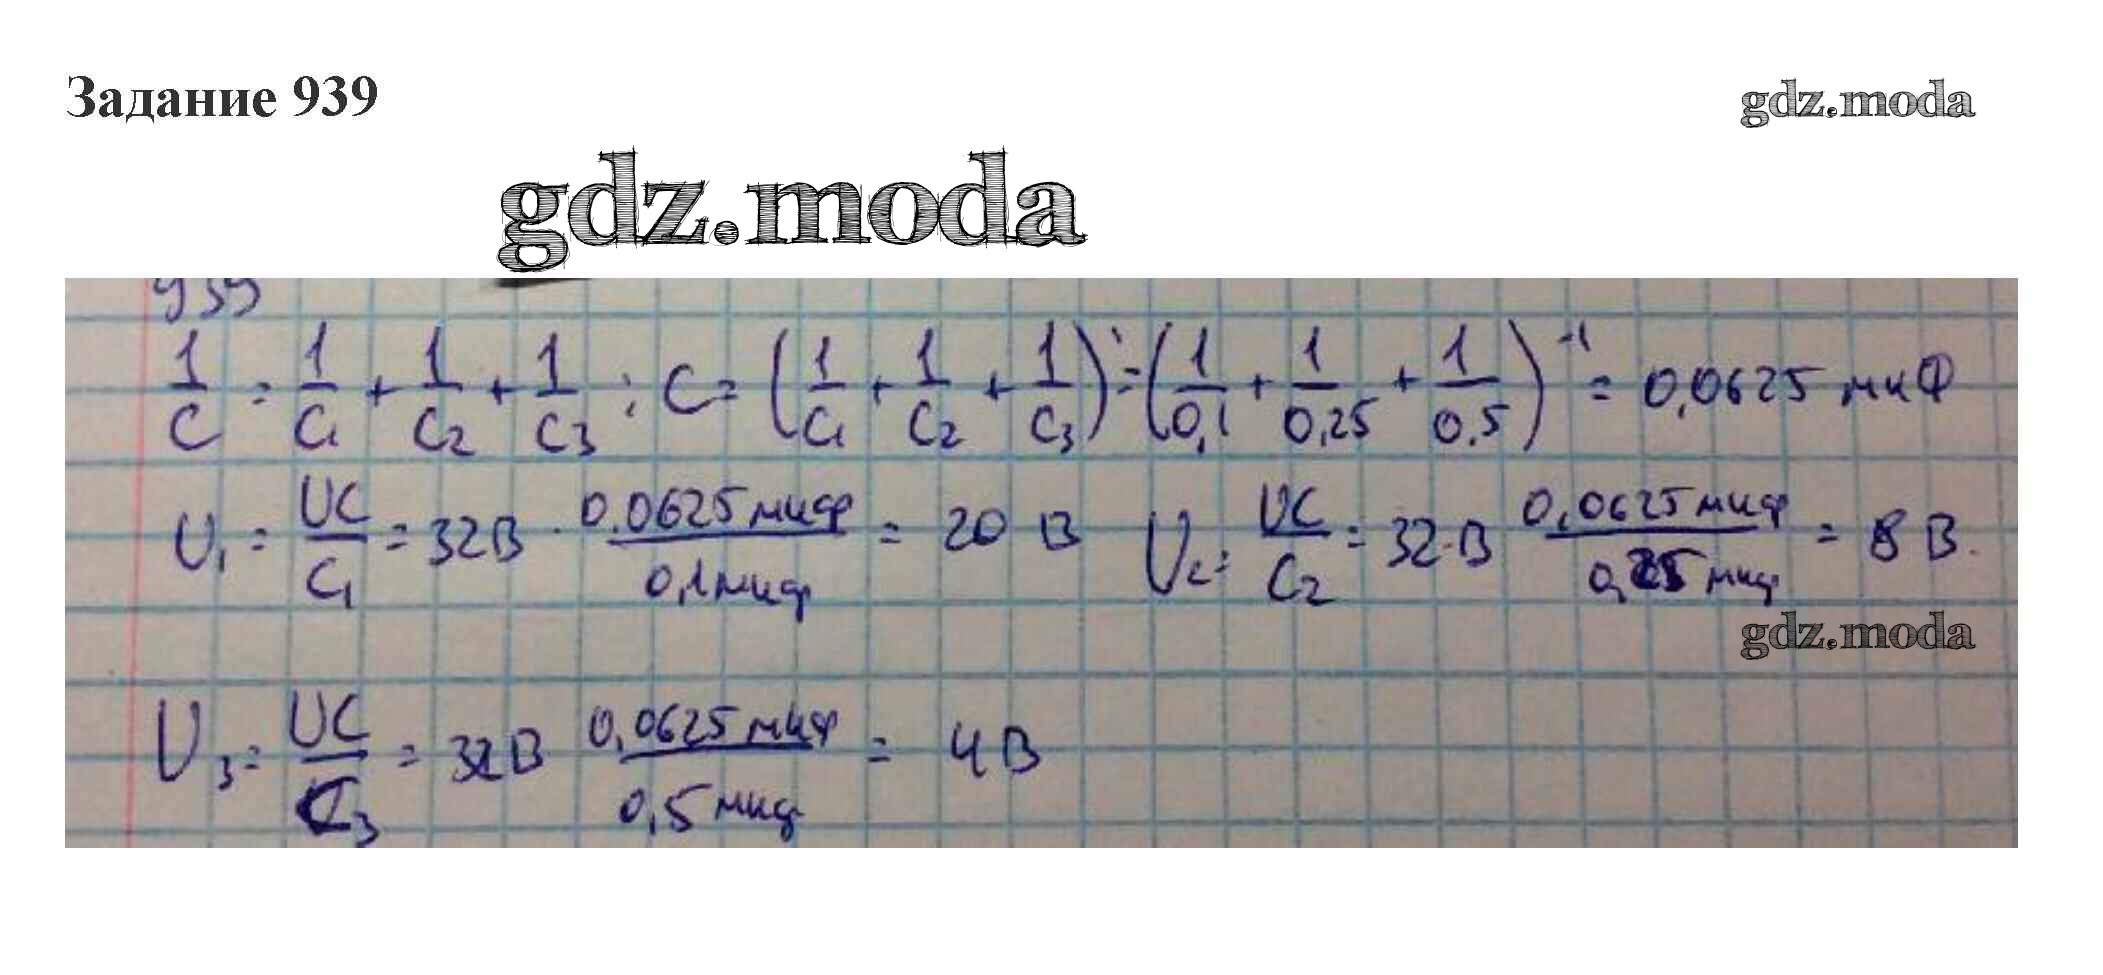 Задание 939
gdz.moda
gdz.moda
939
1/C = 1/C1 + 1/C2 + 1/C3 ; C = (1/C1 + 1/C2 + 1/C3)⁻¹ = (1/0,1 + 1/0,25 + 1/0.5)⁻¹ = 0,0625 мкФ
U1 = UC/C1 = 32В · 0.0625мкф/0,1мкф = 20 В U2 = UC/C2 = 32·В 0,0625мкф/0,25мкф = 8 В.
gdz.moda
U3 = UC/C3 = 32В 0,0625мкф/0,5мкф = 4В